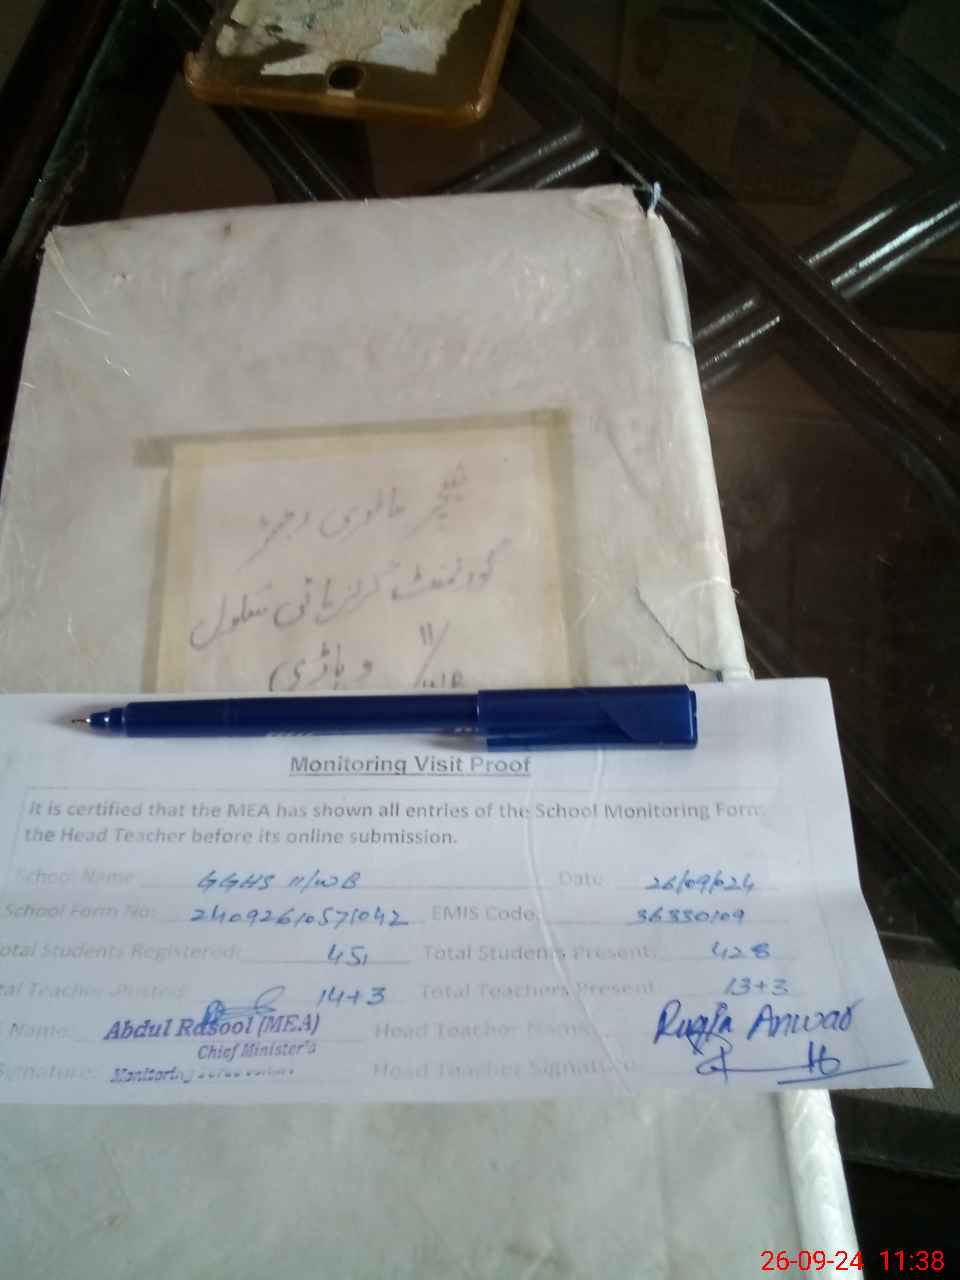 ٹیچر حاضری رجسٹر
گورنمنٹ گرلز ہائی سکول
11/WB وہاڑی
Monitoring Visit Proof
It is certified that the MEA has shown all entries of the School Monitoring Form
the Head Teacher before its online submission.
School Name GGHS 11/WB Date 26/09/024
School Form No: 24092610571042 EMIS Code 36330109
otal Students Registered: 451 Total Students Present: 428
tal Teacher Posted: 14+3 Total Teachers Present 13+3
Name: Abdul Rasool (MEA) Head Teacher Name: Ruqia Anwar
Chief Minister's
Signature: Monitoring Head Teacher Signature:
26-09-24 11:38